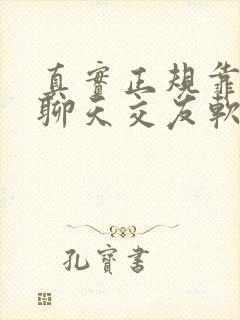 真實正規靠
聊天交友軟
孔寶書